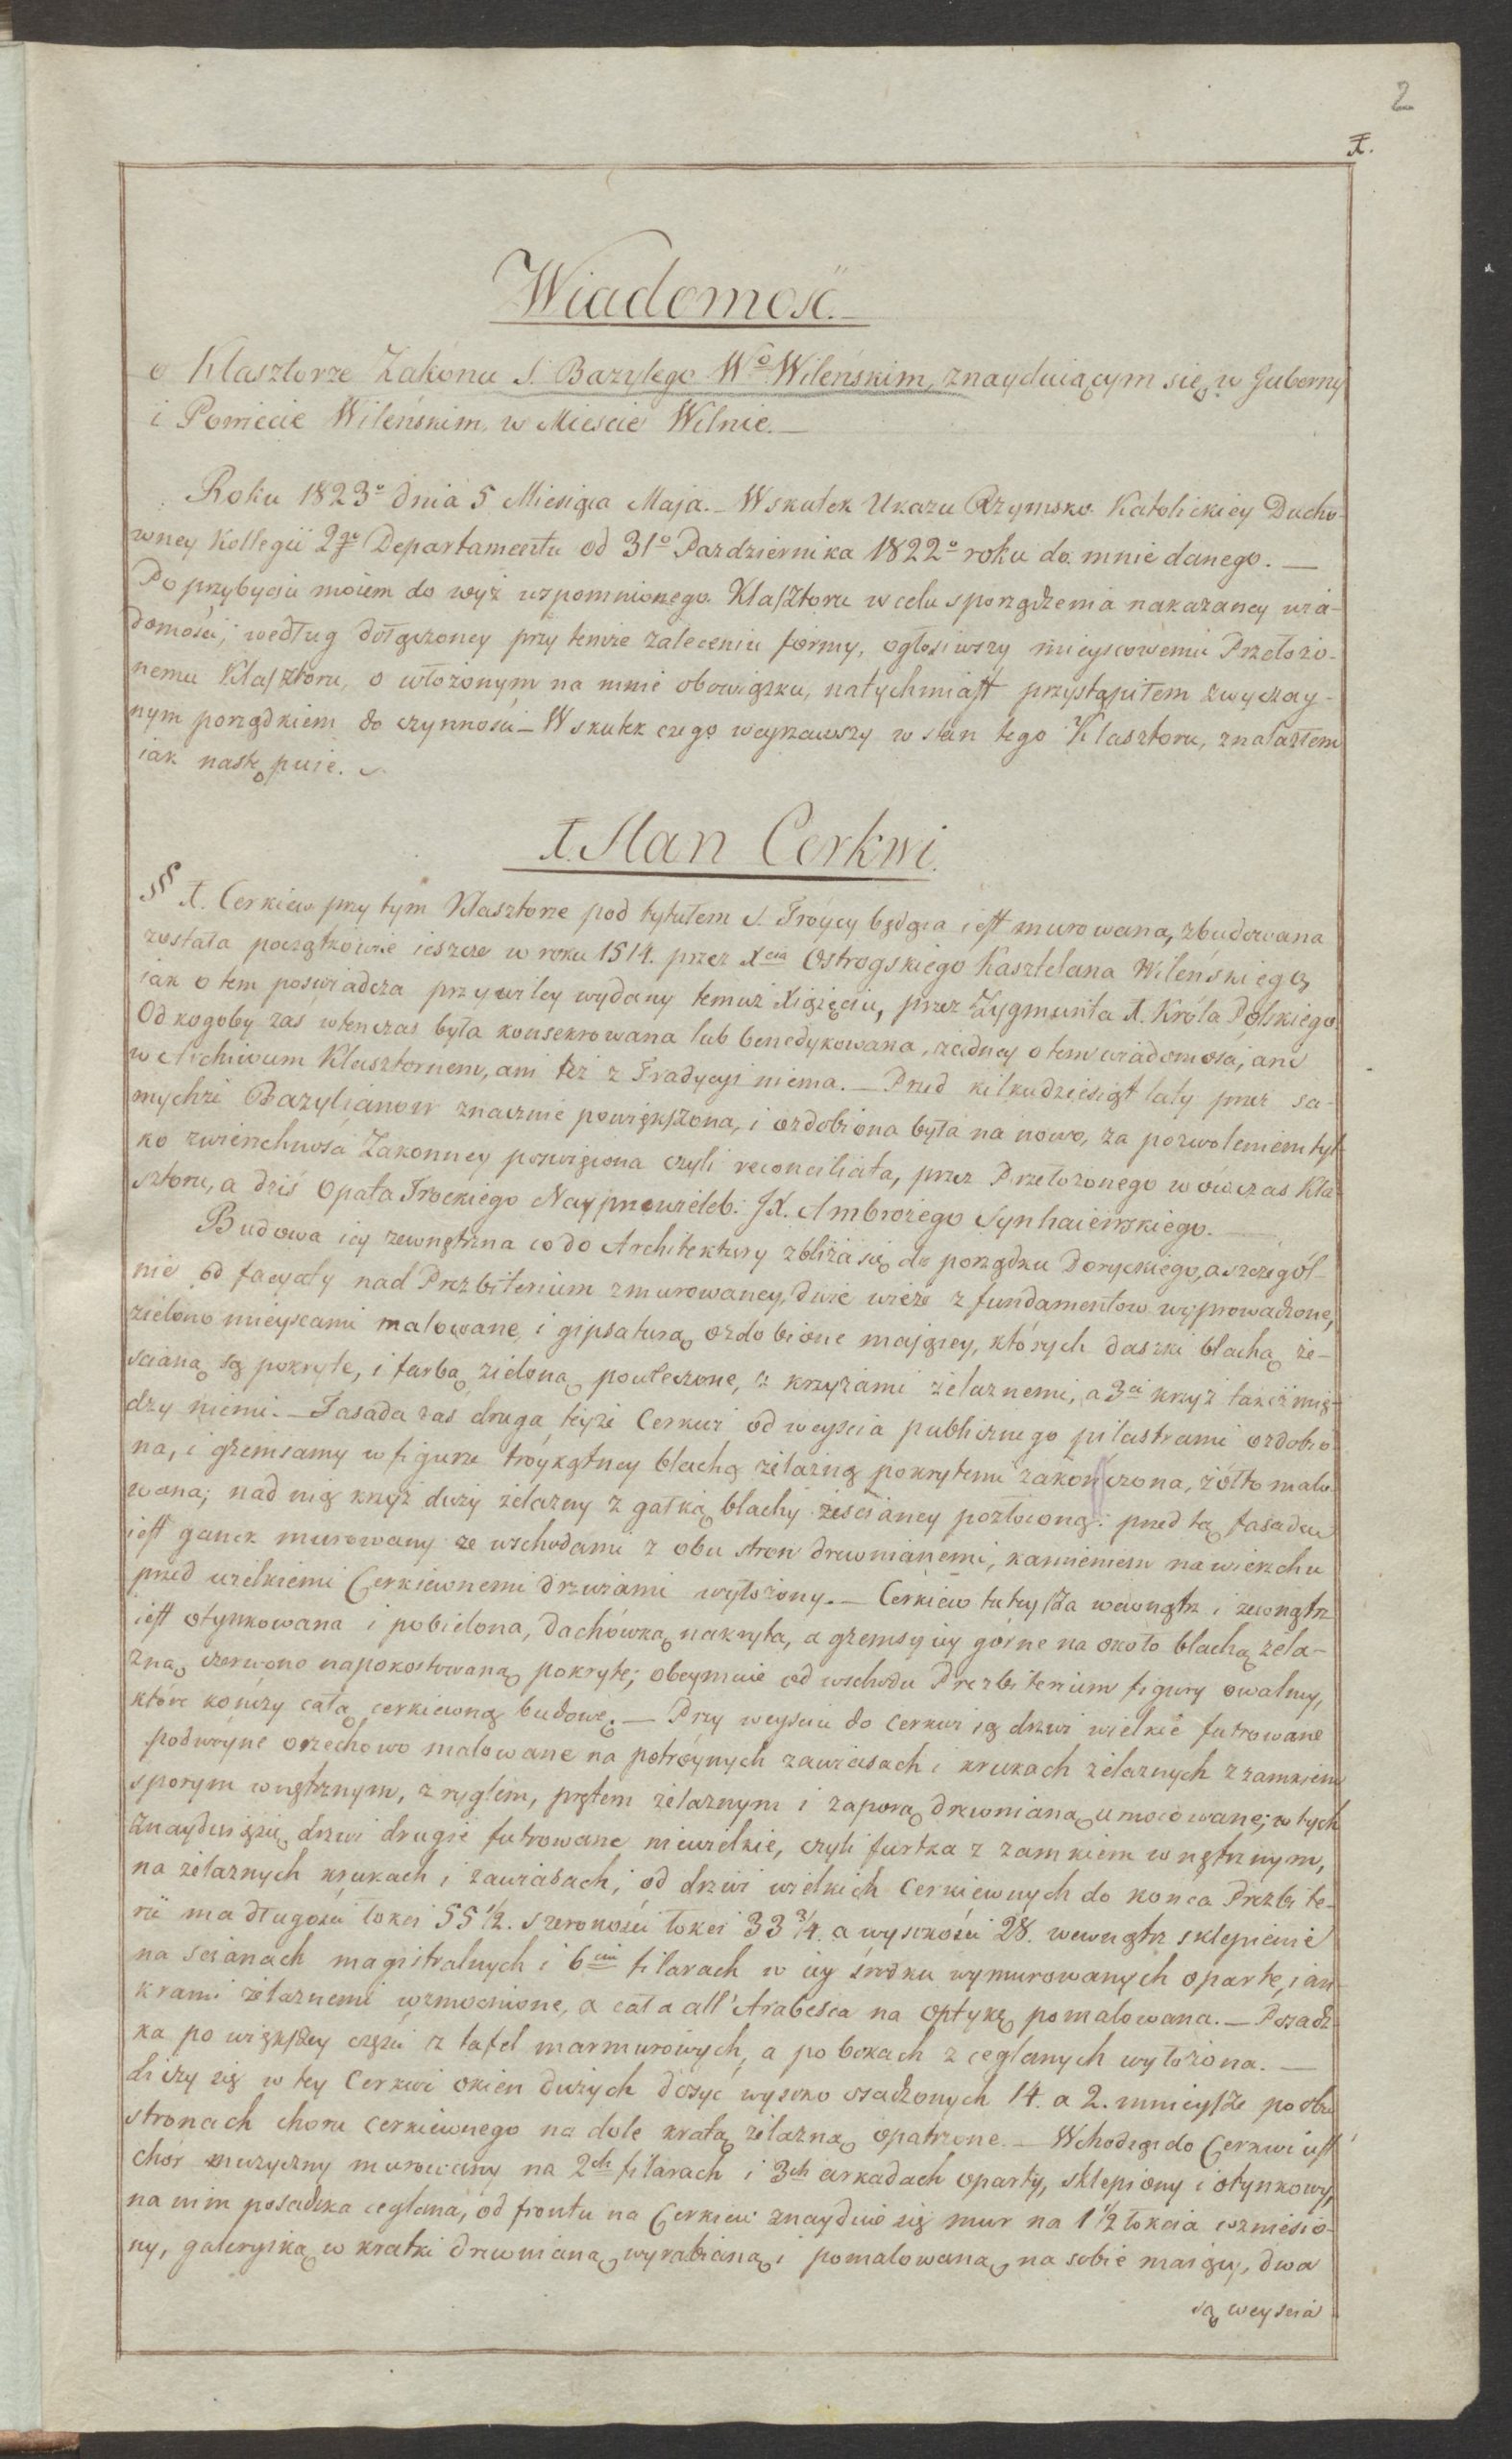 2
I.
Wiadomość.
o Klasztorze Zakónu S. Bazylego Wo Wileńskim, znayduiącym się w Guberny
i Powiecie Wileńskim, w Mieście Wilnie.—
Roku 1823o dnia 5 Miesiąca Maja.— W skutek Ukazu Rzymsko Katolickiey Ducho-
wney Kollegii 2go Departamentu od 31o Pazdziernika 1822o roku do mnie danego.—
Po przybyciu moiem do wyż wspomnionego Klasztoru w celu sporządzenia nakazaney wia-
domości, według dołączoney przy temże zaleceniu formy, ogłosiwszy mieyscowemu Przełożo-
nemu Klasztoru, o włożonym na mnie obowiązku, natychmiast przystąpiłem zwyczay-
nym porządkiem do czynności— W skutek czego weyrzawszy w stan tego Klasztoru, znalazłem
iak następuie.
I. Stan Cerkwi.
§ I. Cerkiew przy tym Klasztorze pod tytułem S. Tróycy będąca iest murowana, zbudowana
została początkowie ieszcze w roku 1514. przez Xcia Ostrogskiego Kasztelana Wileńskiego,
iak o tem poswiadcza przywiley wydany temuż Xiążęciu, przez Zygmunta I. Króla Polskiego.
Od kogoby zas wtenczas była konsekrowana lub benedykowana, żadney o tem wiadomości, ani
w Archiwum Klasztornem, ani też z Tradycyi niema.— Przed kilkudziesiąt laty przez sa-
mychże Bazylianow znacznie powiększona, i ozdobiona była na nowo, za pozwoleniem tyl-
ko zwierzchności Zakonney poswięciona czyli reconciliata, przez Przełożonego wówczas Kla-
sztoru, a dziś Opata Trockiego Nayprzewieleb: JX. Ambrożego Synhaiewskiego.—
Budowa iey zewnętrzna co do Architektury zbliża się do porządku Doryckiego, a szczegól-
nie od facyaty nad Prezbiterium zmurowaney, dwie wieże z fundamentow wyprowadzone,
zielono mieyscami malowane, i gipsaturą ozdobione maiącey, których daszki blachą że-
scianą są pokryte, i farbą zieloną powleczone, z krzyżami żelaznemi, a 3ci krzyż takiż mię-
dzy niemi.— Fasada zas druga teyże Cerkwi od weyscia publicznego pilastrami ozdobio-
na, i gzemsamy w figurze tróykątney blachą żelazną pokrytemi zakończona, żółto malo-
wana; nad nią krzyż duży żelazny z gałką blachy żescianey pozłoconą: przed tą fasadą
iest ganek murowany ze wschodami z obu stron drewnianemi, kamieniem na wierzchu
przed wielkiemi Cerkiewnemi drzwiami wyłożony.— Cerkiew tuteysza wewnątrz i zewnątrz
iest otynkowana i pobielona, Dachówką nakryta, a gzemsy iey górne na około blachą żela-
zną czerwono napokostowaną pokryte; obeymuie od wschodu Prezbiterium figury owalney,
które kończy całą cerkiewną budowę.— Przy weysciu do Cerkwi są drzwi wielkie futrowane
podwóyne orzechowo malowane na potróynych zawiasach i krukach żelaznych z zamkiem
sporym wnętrznym, z ryglem, prętem żelaznym i zaporą drewnianą umocowane; w tych
znayduią się drzwi drugie futrowane niewielkie, czyli furtka z zamkiem wnętrznym,
na żelaznych krukach i zawiasach; od drzwi wielkich Cerkiewnych do konca Prezbite-
rii ma długosci łokci 55 1/2. szerokości łokci 33 3/4. a wysokości 28. wewnątrz sklepienie
na scianach magistralnych i 6ciu filarach w iey środku wymurowanych oparte, i an-
krami żelaznemi wzmocnione, a cała all' Arabesca na optykę pomalowana.— Posadz-
ka po większey części z tafel marmurowych, a po bokach z ceglanych wyłożona.—
Liczy się w tey Cerkwi okien dużych dosyć wysoko osadzonych 14. a 2. mnieysze po obu
stronach choru cerkiewnego na dole kratą żelazną opatrzone.— Wchodząc do Cerkwi iest
chór muzyczny murowany na 2ch filarach i 3ch arkadach oparty, sklepiony i otynkowy,
na nim posadzka ceglana, od frontu na Cerkiew znayduie się mur na 1 1/2 łokcia wzniesio-
ny, galeryiką w kratki drewnianą wyrabianą i pomalowaną na sobie maiący, dwa
są weyscia